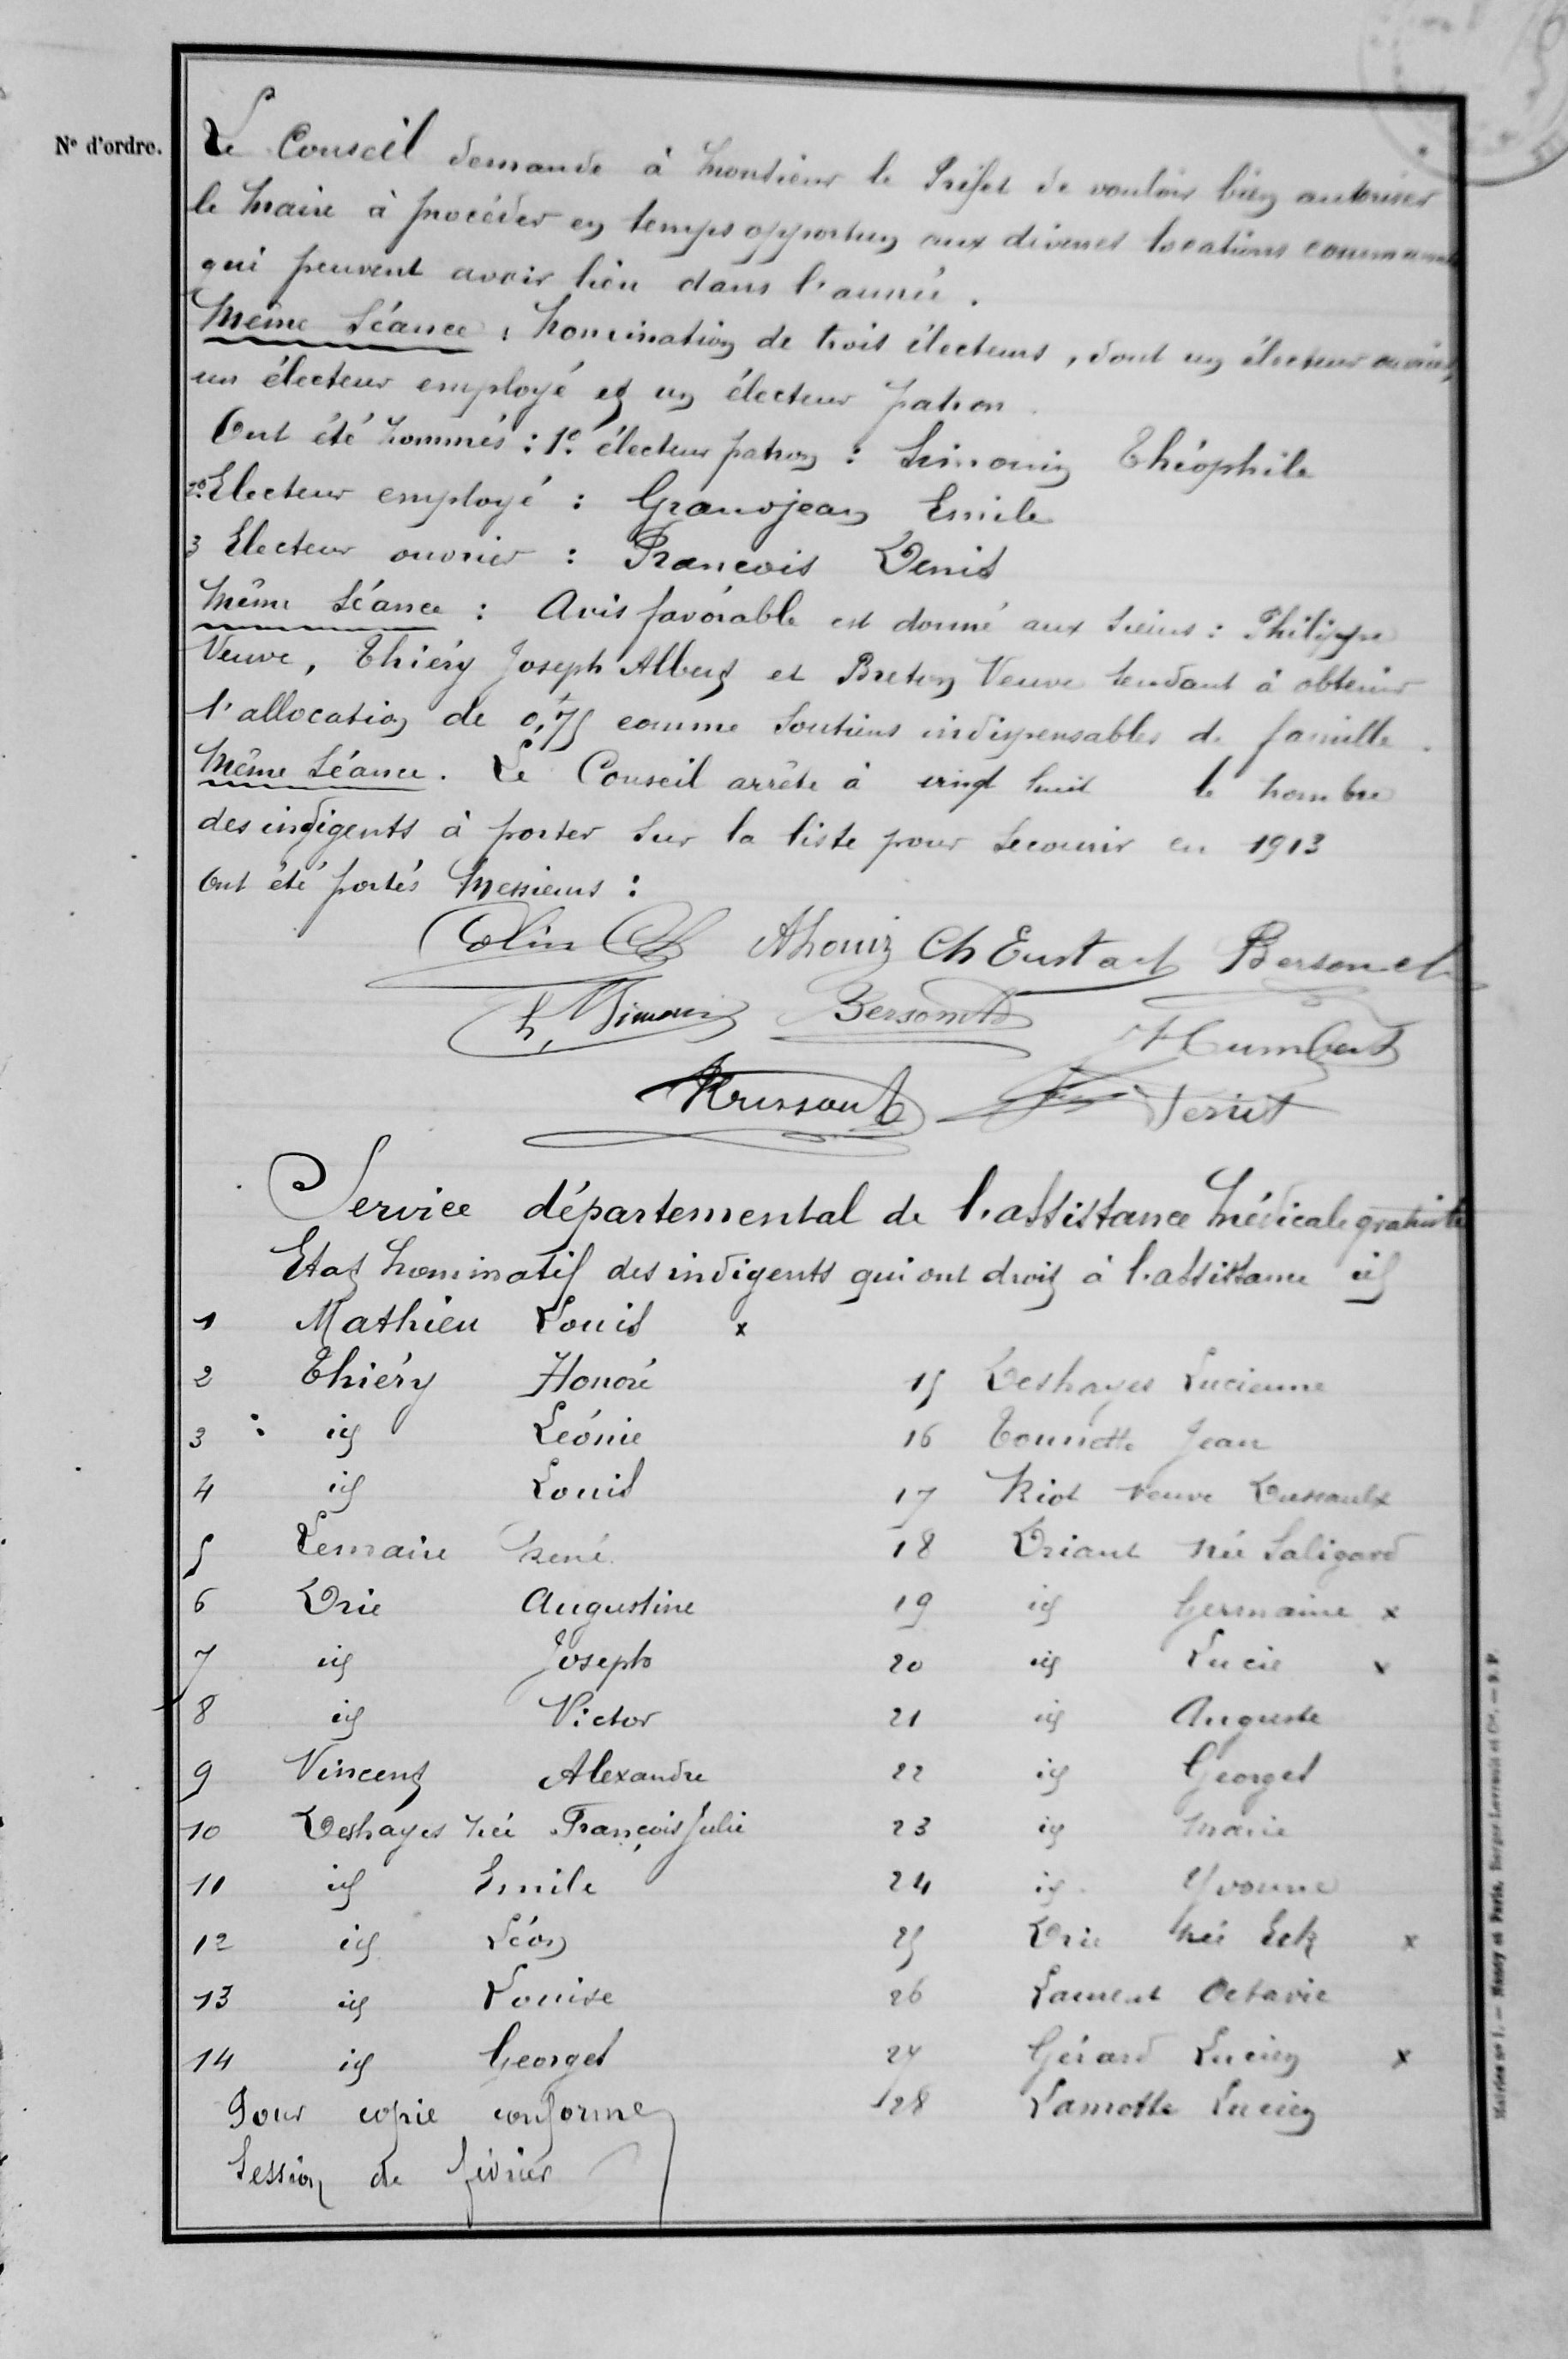 N° d'ordre.
Le Conseil demande à Monsieur le Préfet de vouloir bien autoriser
le Maire à procéder en temps opportun aux diverses locations
qui peuvent avoir lieu dans l'année.
Même Séance : Nomination de trois électeurs, dont un électeur ouvrier,
un électeur employé et un électeur patron.
Ont été nommés : 1° électeur patron : Simonin Théophile
2° Electeur employé : Grandjean Emile
3 Electeur ouvrier : Francois Denis
Même Séance : Avis favorable est donné aux sieurs : Philippe
Veuve, Thiéry Joseph Albert et Breton Veuve tendant à obtenir
l'allocation de 0,f75 comme soutiens indispensables de famille.
Même Séance. Le Conseil arrête à vingt huit le nombre
des indigents à porter sur la liste pour secourir en 1913
Ont été portés Messieurs :
Colin Ch Eustach
Humbert
Service départemental de l'assistance Médicale gratuite
Etat nominatif des indigents qui ont droit à l'assistance
1 Mathieu Louis x
2 Thiéry Honoré
3 : id Léonie
4 id Louis
5 Lemaire René
6 Drie Augustine
7 id Joseph
8 id Victor
9 Vincent Alexandre
10 Deshayes née François Julie
11 id Emile
12 id Léon
13 id Louise
14 id Georges
Pour copie conforme
Session de février
15 Deshayes Lucienne
16 Tounotte Jean
17 Riot Veuve Dussaulx
18 Driant née Saligard
19 id Germaine x
20 id Lucie x
21 id Auguste
22 id Georges
23 id Marie
24 id Yvonne
25 Drie née Eck x
26 Laurent Octavie
27 Gérard Lucien x
28 Lamotte Lucien
Mairies n° 1. — Nancy et Paris, Berger-Levrault et Cie. — J. P.